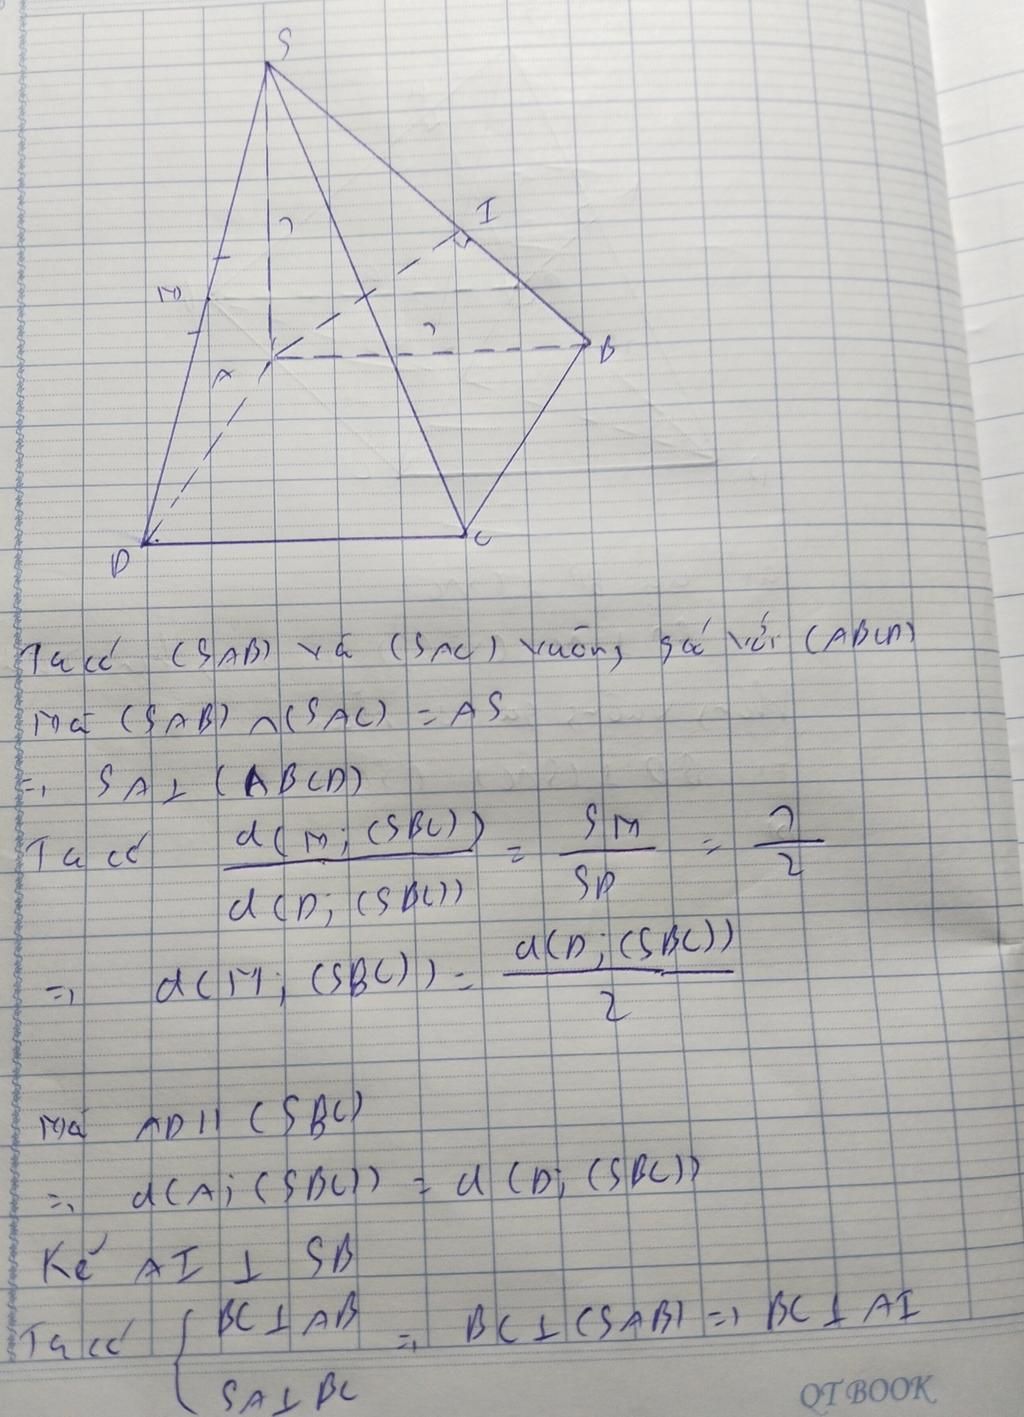 S
I
M
1
1
A
B
D
C
Ta có (SAB) và (SAC) vuông góc với (ABCD)
Mà (SAB) ∩ (SAC) = AS
=> SA ⊥ (ABCD)
Ta có d(M; (SBC)) / d(D; (SBC)) = SM / SD = 1 / 2
=> d(M; (SBC)) = d(D; (SBC)) / 2
Mà AD // (SBC)
=> d(A; (SBC)) = d(D; (SBC))
Kẻ AI ⊥ SB
Ta có { BC ⊥ AB => BC ⊥ (SAB) => BC ⊥ AI
SA ⊥ BC
QTBOOK